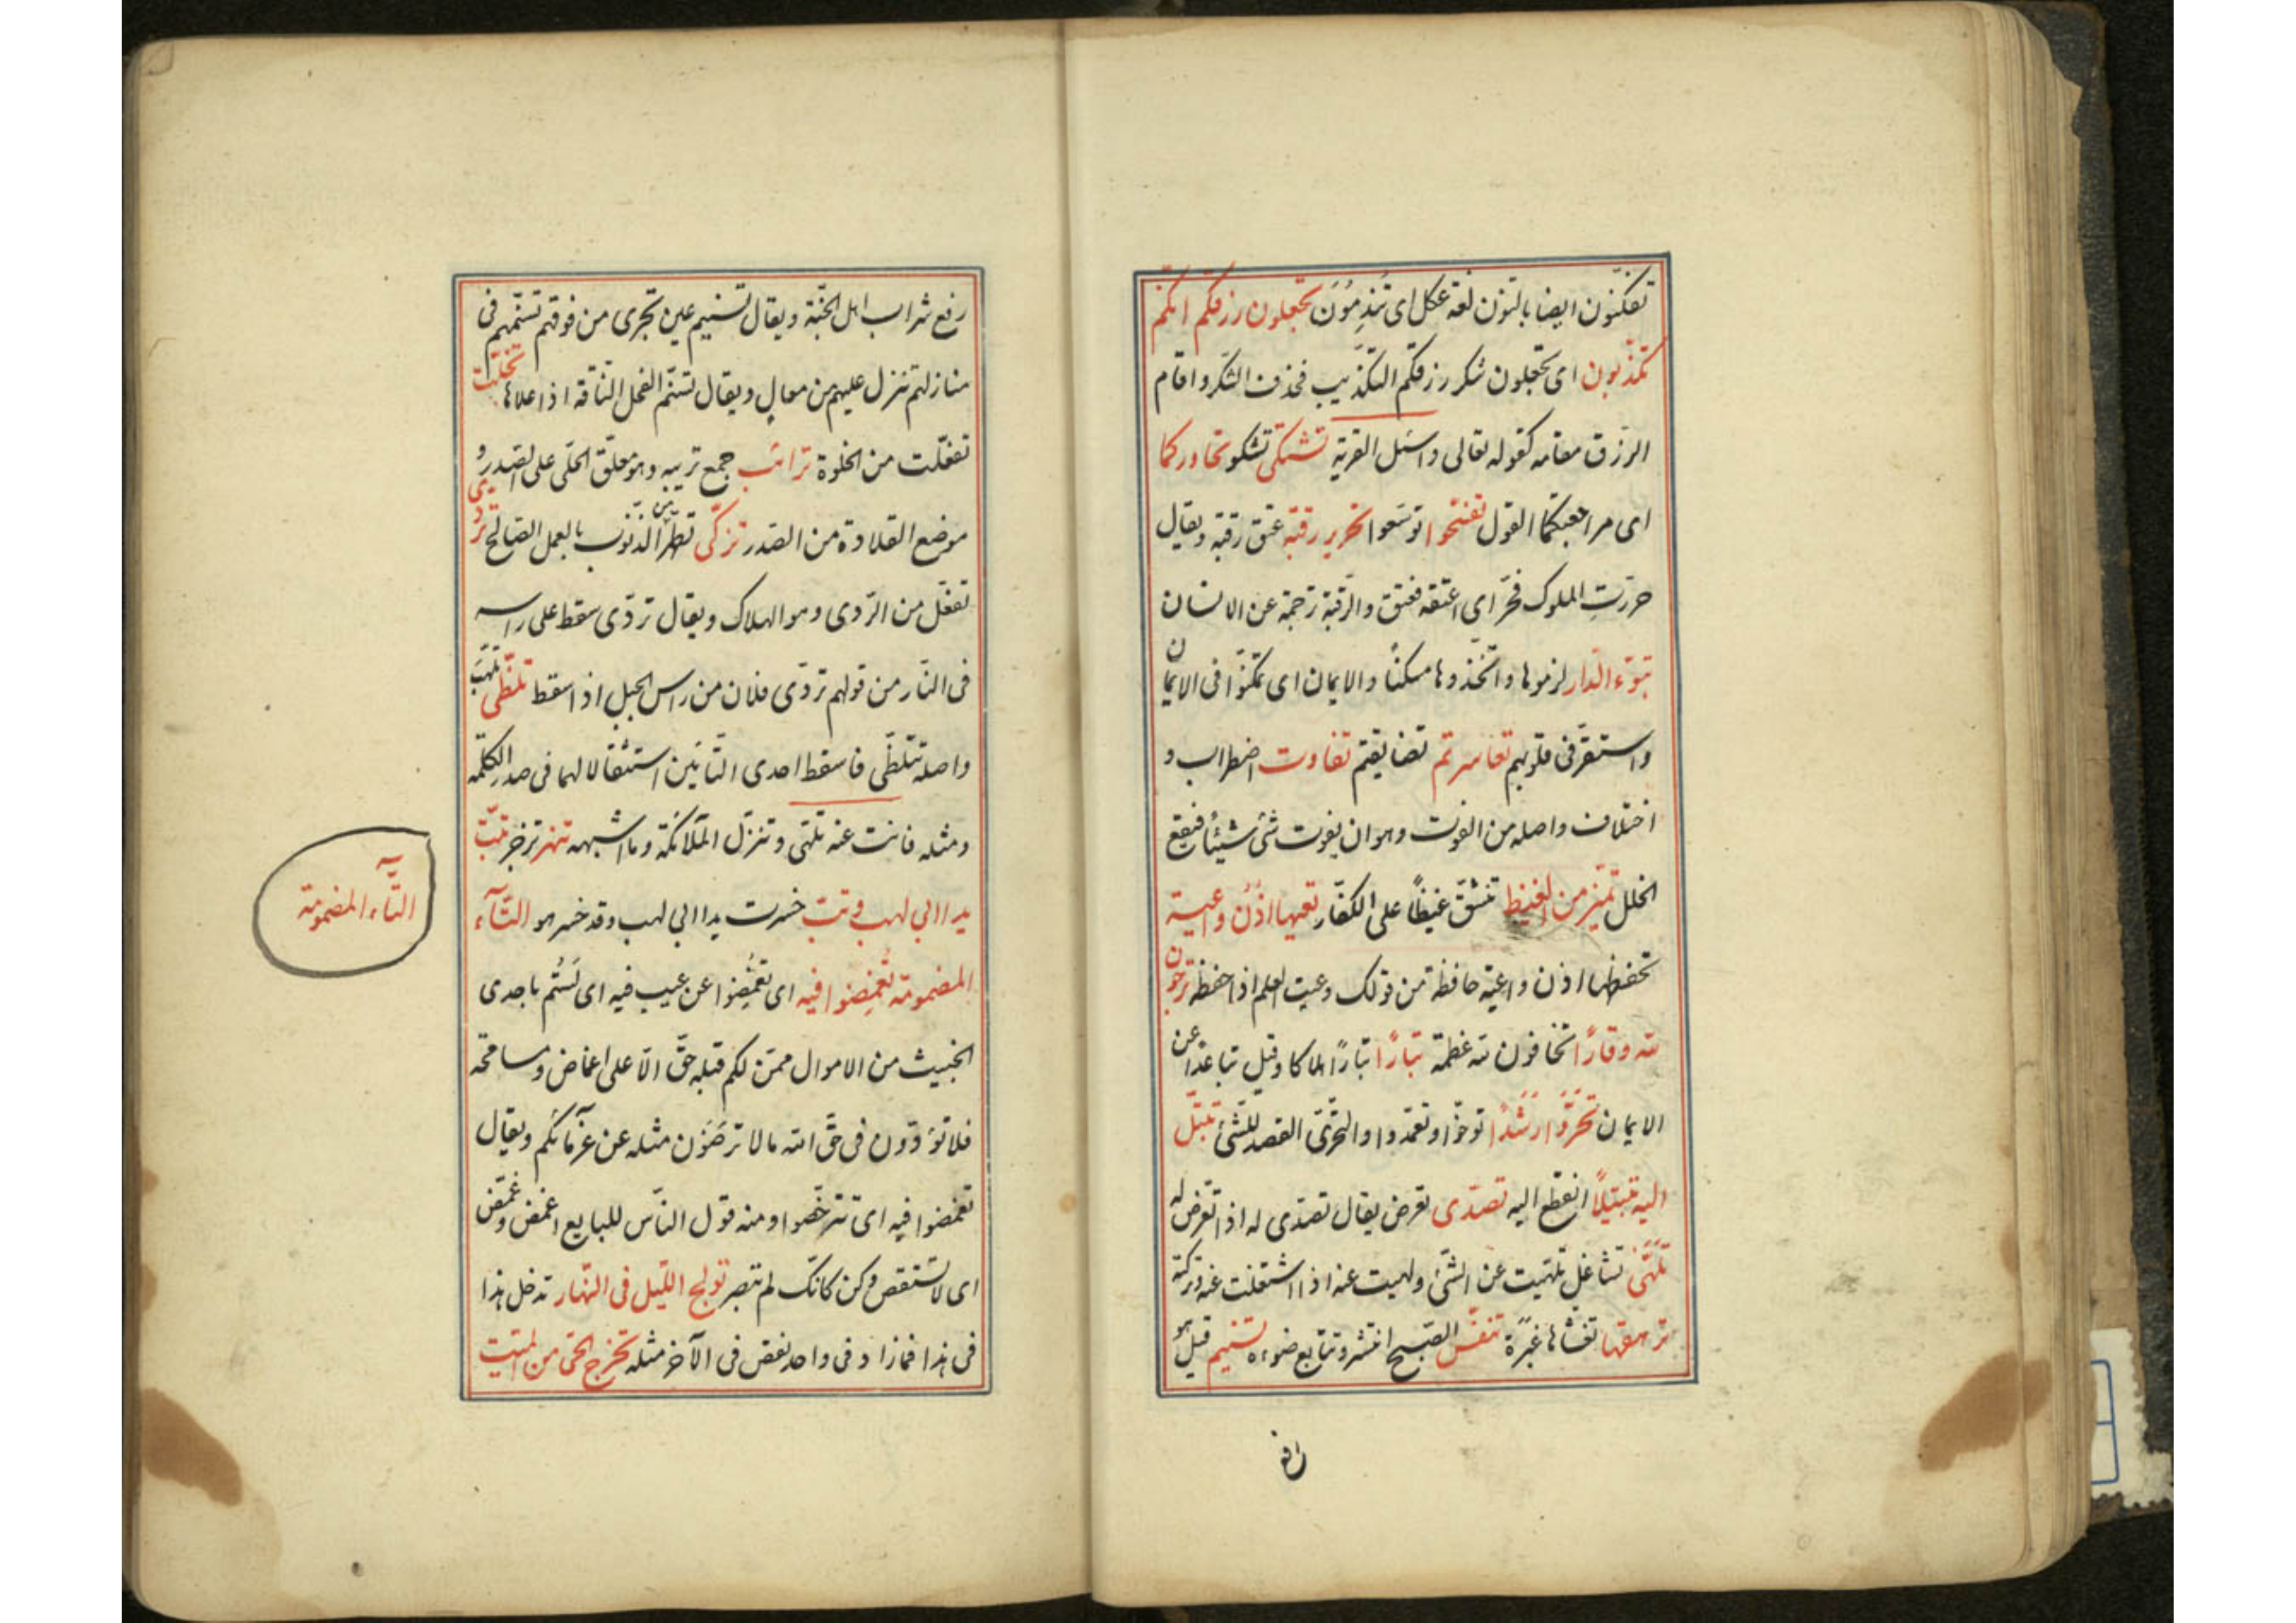 تفكنون ايضا بالنون لغة عكل اى تندمون تجعلون رزقكم انكم
تكذبون اى تجعلون شكر رزقكم التكذيب فحذف الشكر واقام
الرزق مقامه كقوله تعالى واسئل القرية تشتكى تشكو تحاوركما
اى مراجعتكما القول تفسحوا توسعوا تحرير رقبة عتق رقبة ويقال
حررت المملوك فحر اى اعتقه فعتق والرقبة ترجمة عن الانسان
تبوء الدار لزموها واتخذوها مسكنا والايمان اى تمكنوا فى الايمان
واستقر فى قلوبهم تعاسرتم تضايقتم تفاوت اضطراب و
اختلاف واصله من الفوت وهو ان يفوت شئ شيئا فيقع
الخلل تميز من الغيظ تنشق غيظا على الكفار تعيها اذن واعية
تحفظها اذن واعية حافظة من قولك وعيت العلم اذا حفظته ترجون
لله وقارا تخافون لله عظمة تبارا تبارا هلاكا وقيل تباعدا عن
الايمان تحروا رشدا توخوا وتعمدوا والتحرى القصد للشئ تبتل
اليه تبتيلا انقطع اليه تصدى تعرض يقال تصدى له اذا تعرض له
تلهى تشاغل تلهيت عن الشئ ولهيت عنه اذا اشتغلت عنه وتركته
ترهقها تغشاها غبرة تنفس الصبح انتشر وتتابع ضوءه تسنيم قيل هو
رفع شراب اهل الجنة ويقال تسنيم عين تجرى من فوقهم تسنمهم فى
منازلهم تنزل عليهم من معال ويقال تسنم الفحل الناقة اذا علاها تخلت
تفعلت من الخلوة ترائب جمع تريبه وهو معلق الحلى على الصدر و
موضع القلادة من الصدر تزكى تطهر من الذنوب بالعمل الصالح تردى
تفعل من الردى وهو الهلاك ويقال تردى سقط على راسه
فى النار من قولهم تردى فلان من راس الجبل اذا سقط تلظى تلهب
واصله تتلظى فاسقط احدى التائين استثقالا لهما فى صدر الكلمة
ومثله فانت عنه تلهى وتنزل الملائكة وما اشبهه تنهر تزجر تبت
يدا ابى لهب وتبت خسرت يدا ابى لهب وقد خسر هو التآء
المضمومة تغمضوا فيه اى تغمضوا عن عيب فيه اى لستم باخذى
الخبيث من الاموال ممن لكم قبله حق الا على اغماض ومسامحة
فلا تؤدون فى حق الله ما لا ترضون مثله عن غرمائكم ويقال
تغمضوا فيه اى تترخصوا ومنه قول الناس للبايع اغمض وغمض
اى لا تستقص وكن كانك لم تبصر تولج الليل فى النهار تدخل هذا
فى هذا فما زاد فى واحد نقص فى الآخر مثله تخرج الحى من الميت
التآء المضمومة